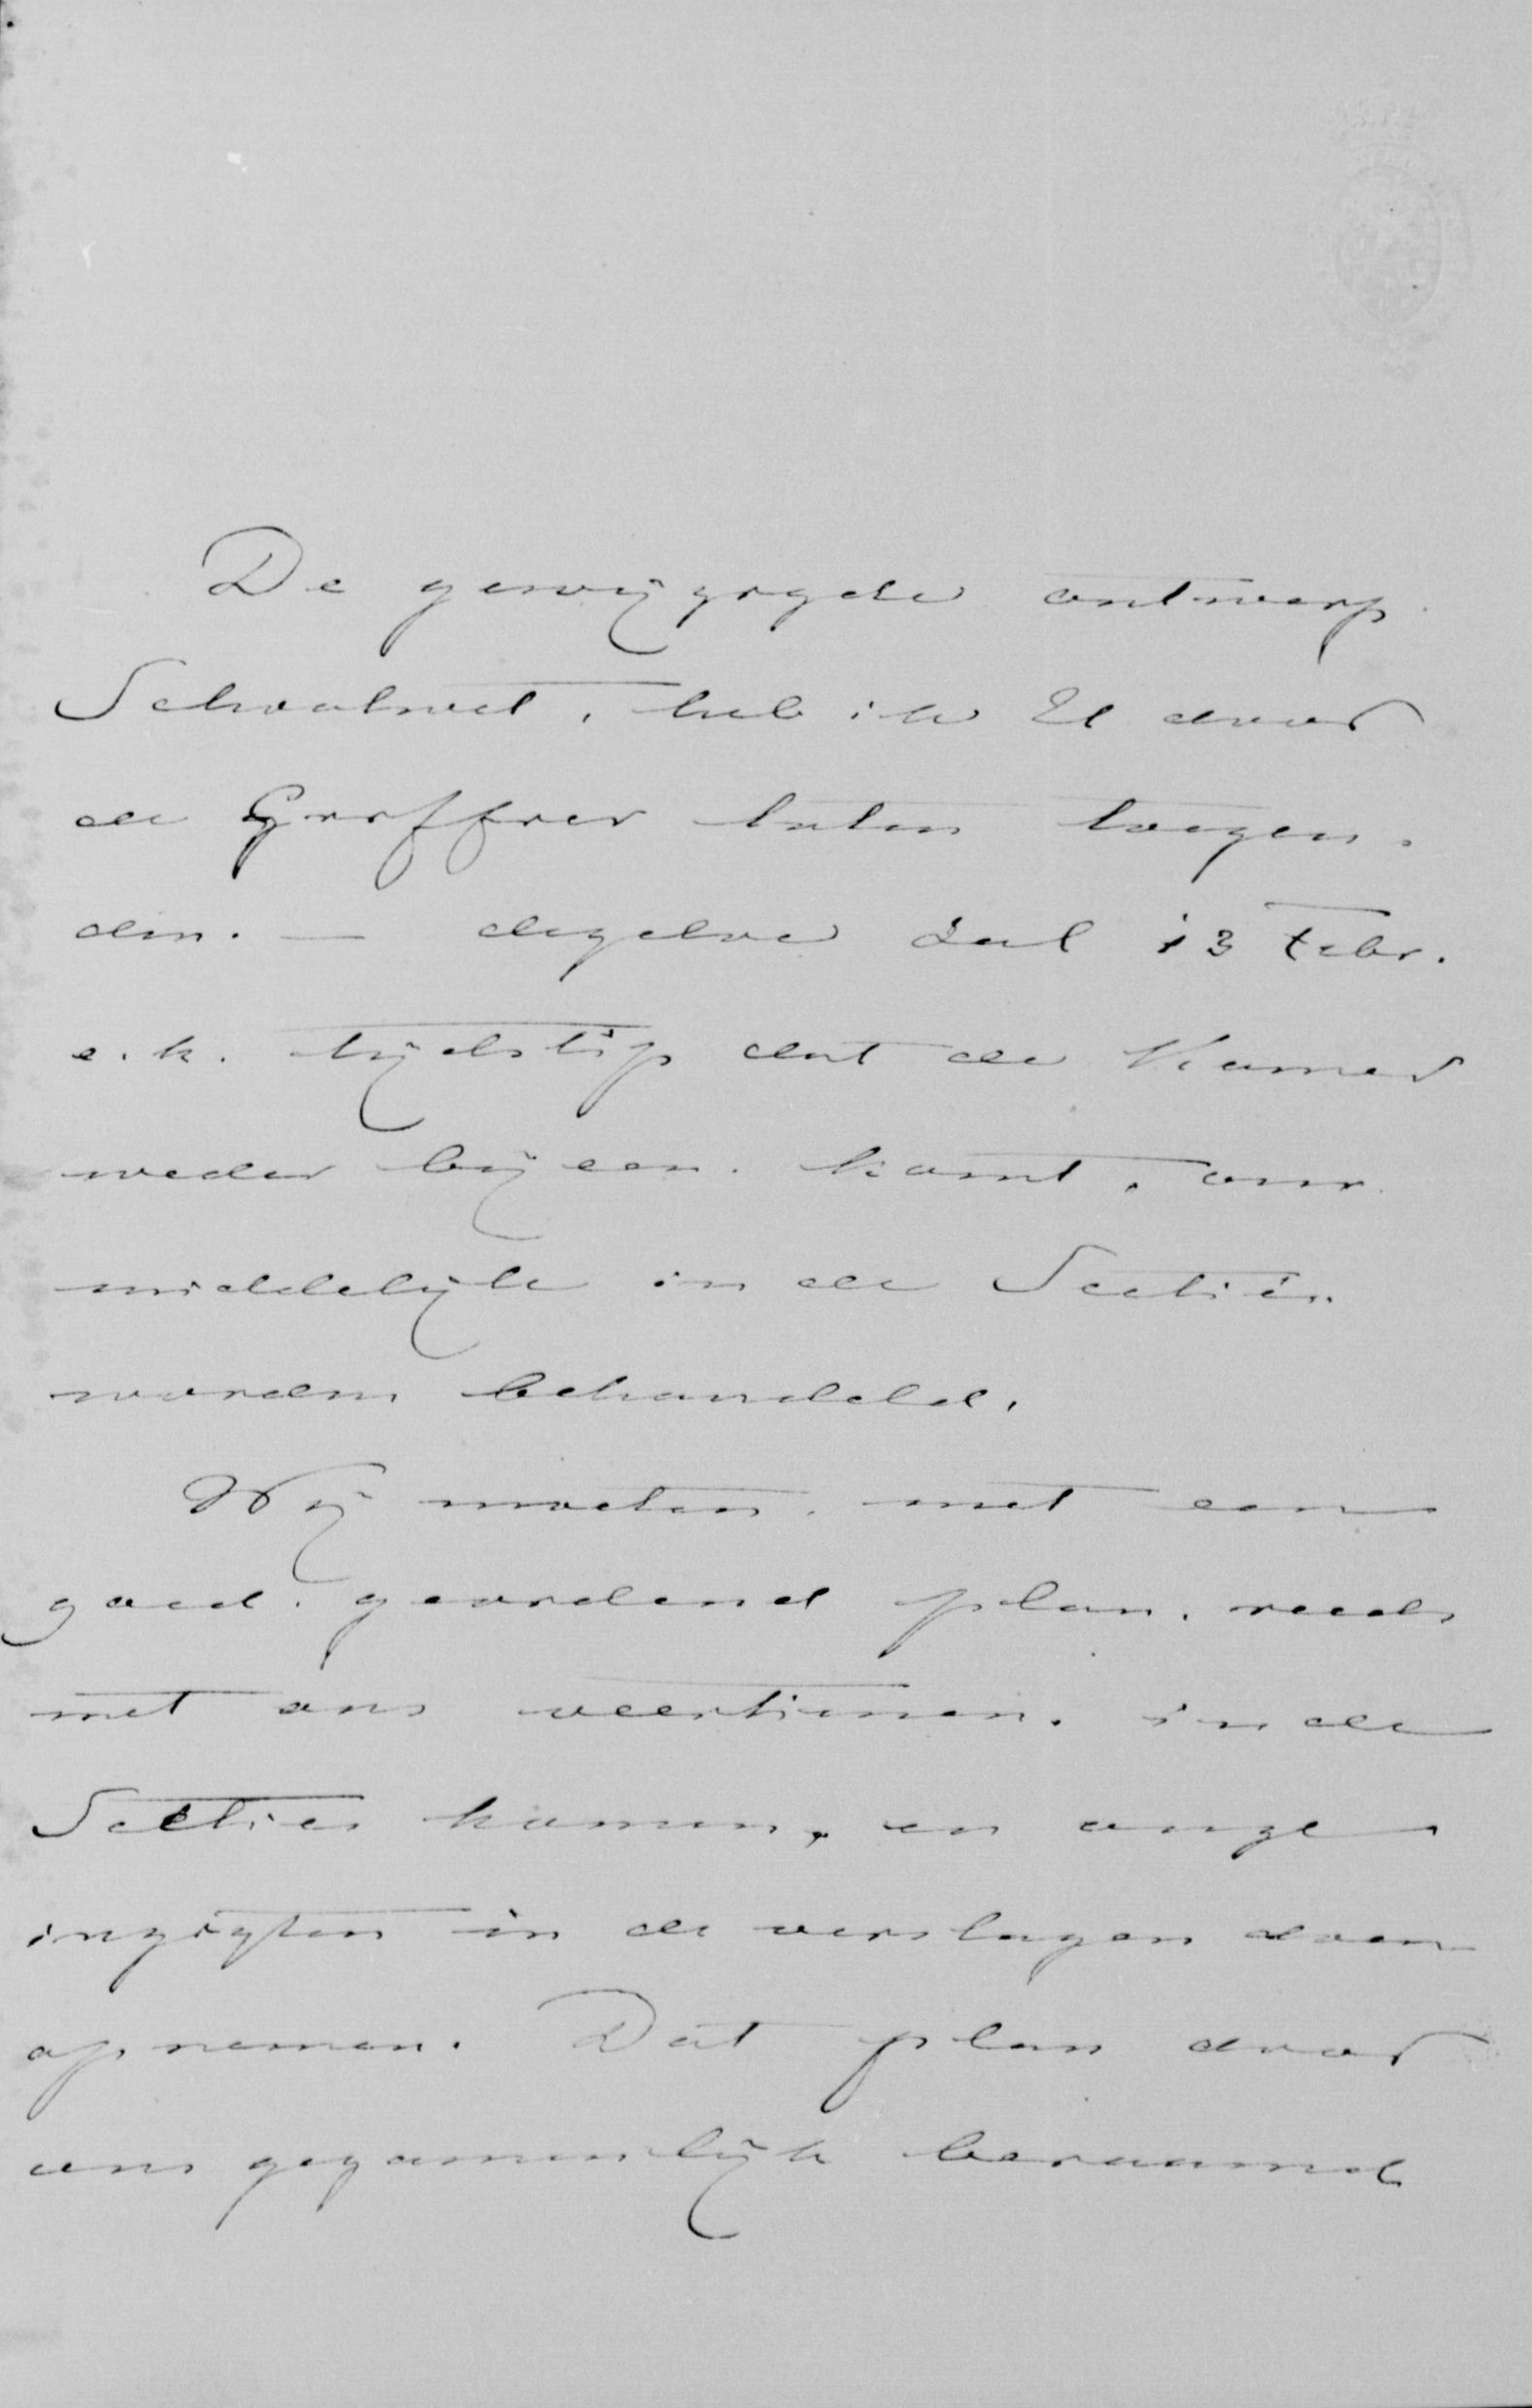 De gewijzigde ontwerp
Schoolwet, heb ik U door
de Griffier laten toezen.
den. — dezelve zal 13 Febr.
e.k. tijdstip dat de Kamer
weder bijeen. komt, onr
middelijk in de Sectiën
worden behandeld.
Wij moeten. met een
goed. geordend plan. reeds
met ons veertienen. in de
Secties komen, en onze
inzigten in de verslagen doen
opnemen. Dat plan door
ons gezamenlijk beraamd